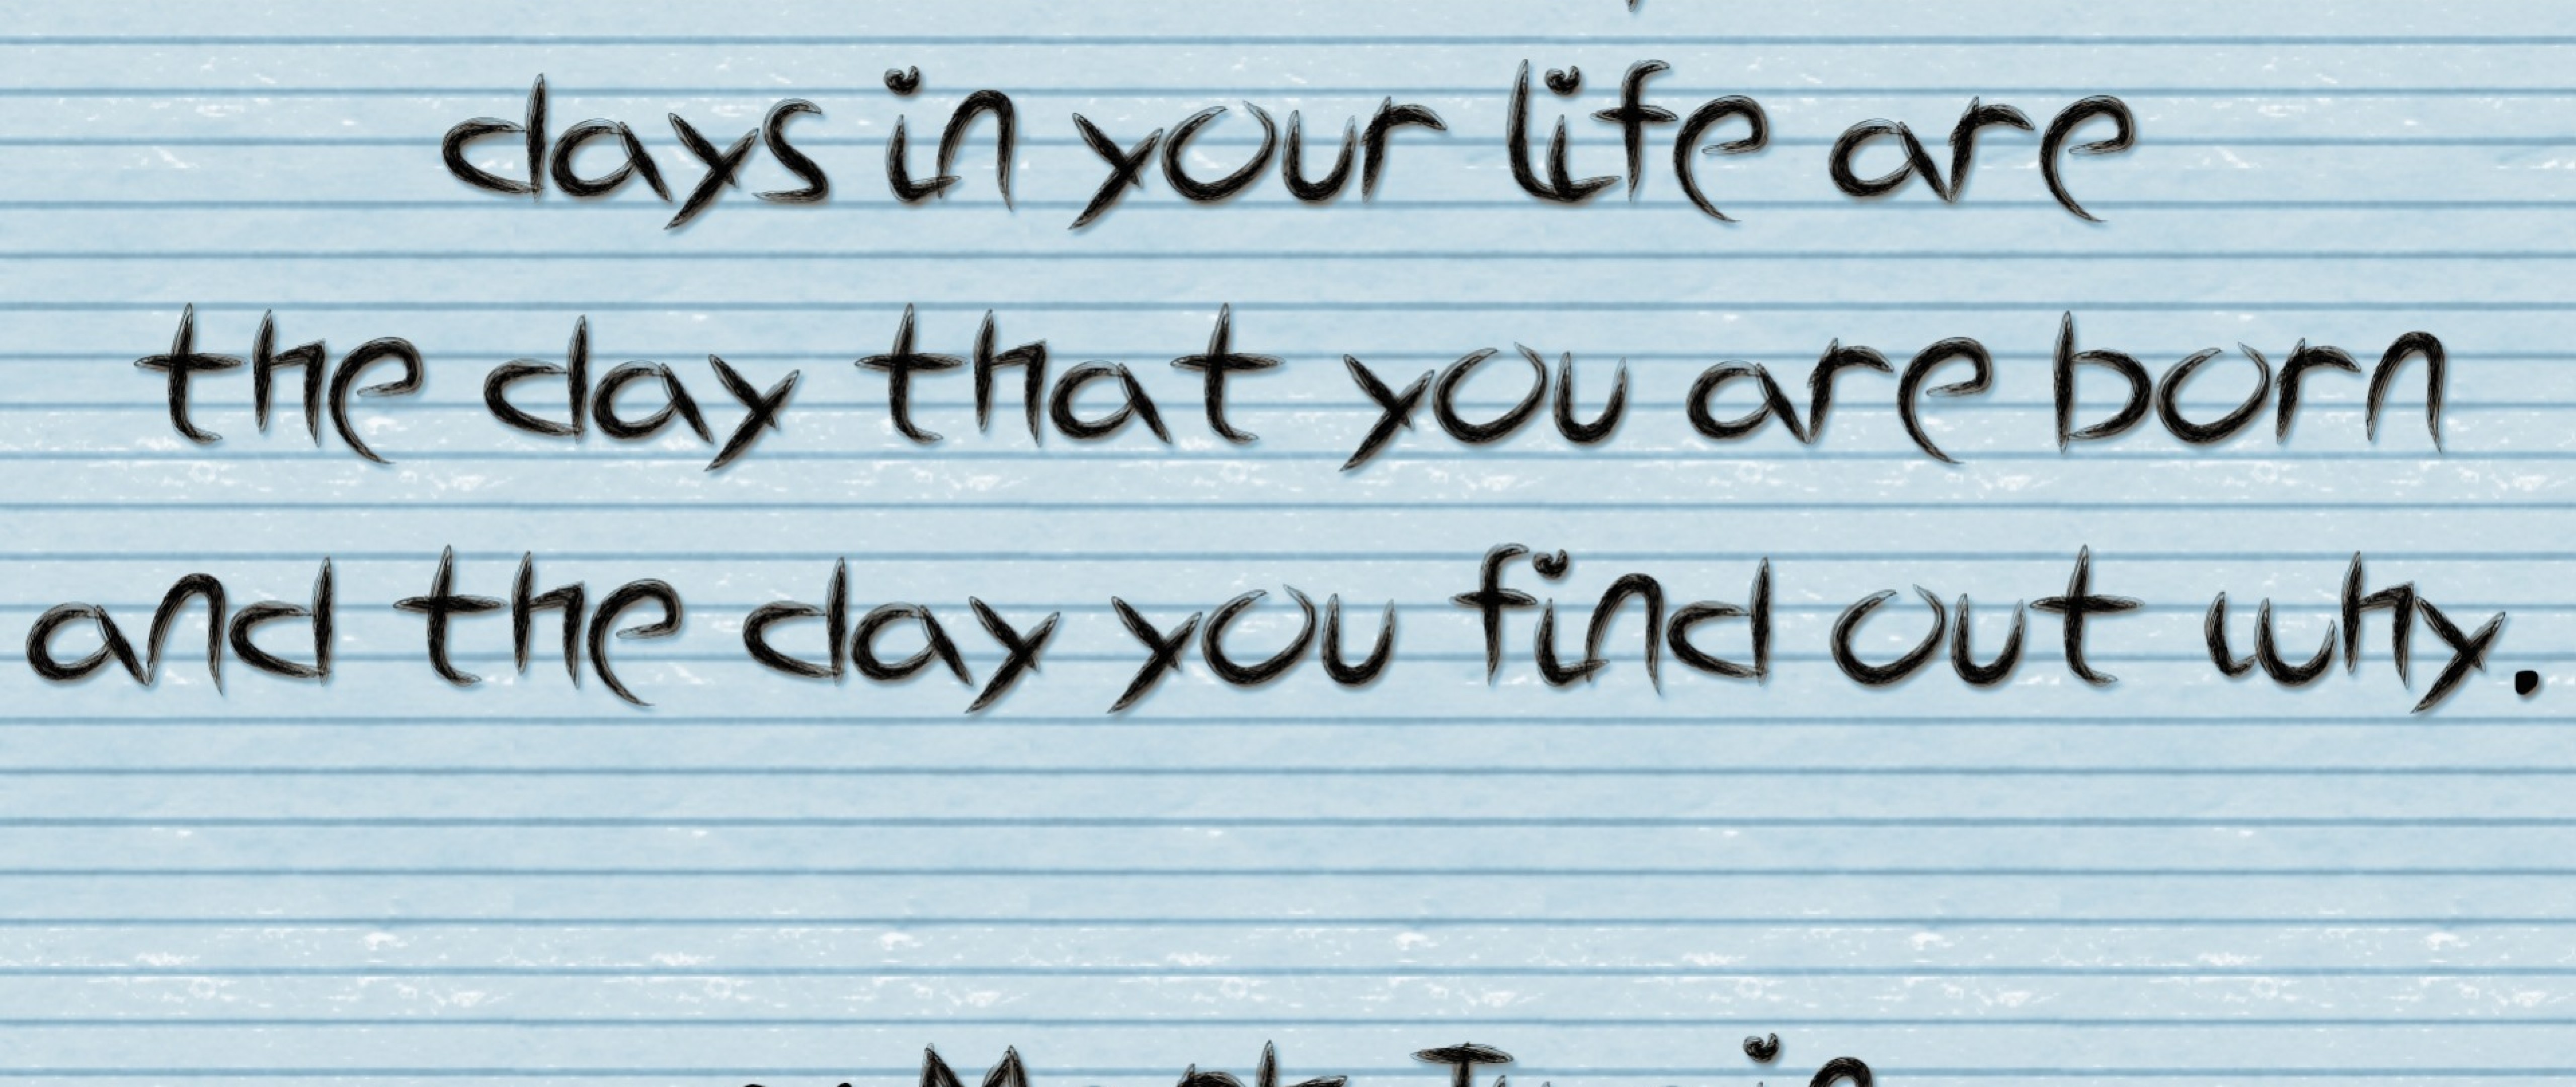 days in your life are
the day that you are born
and the day you find out why.